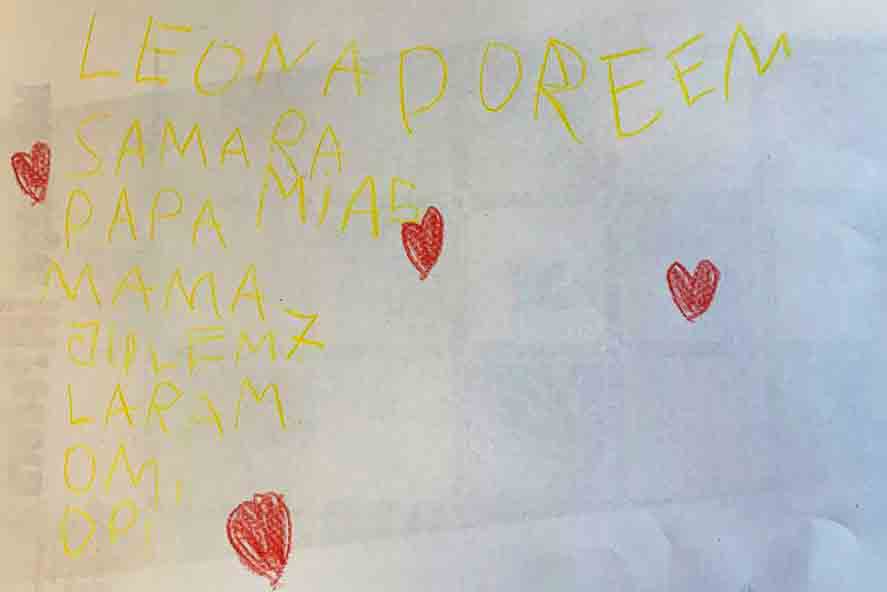 LEONA DOREEM
SAMARA
PAPA MIAS
MAMA
LARAM
OMI
OPI